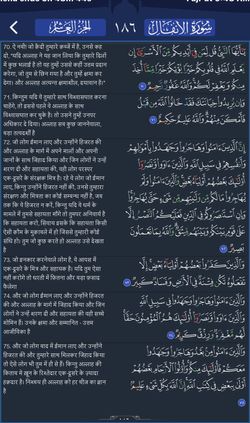 الجزء العاشر ١٨٦ سورة الأنفال
70. ऐ नबी! जो क़ैदी तुम्हारे क़ब्जे में है, उनसे कह
दो, "यदि अल्लाह ने यह जान लिया कि तुम्हारे दिलों
में कुछ भलाई है तो वह तुम्हें उससे कहीं उत्तम प्रदान
करेगा, जो तुम से छिन गया है और तुम्हें क्षमा कर
देगा। और अल्लाह अत्यन्त क्षमाशील, दयावान है।"
71. किन्तु यदि वे तुम्हारे साथ विश्वासघात करना
चाहेंगे, तो इससे पहले वे अल्लाह के साथ
विश्वासघात कर चुके है। तो उसने तुम्हें उनपर
अधिकार दे दिया। अल्लाह सब कुछ जाननेवाला,
बड़ा तत्वदर्शी है
72. जो लोग ईमान लाए और उन्होंने हिजरत की
और अल्लाह के मार्ग में अपने मालों और अपनी
जानों के साथ जिहाद किया और जिन लोगों ने उन्हें
शरण दी और सहायता की, वही लोग परस्पर
एक-दूसरे के संरक्षक मित्र है। रहे वे लोग जो ईमान
लाए, किन्तु उन्होंने हिजरत नहीं की, उनसे तुम्हारा
संरक्षण और मित्रता का कोई सम्बन्ध नहीं है, जब
तक कि वे हिजरत न करें, किन्तु यदि वे धर्म के
मामले में तुमसे सहायता माँगे तो तुमपर अनिवार्य है
कि सहायता करो, सिवाय इसके कि सहायता किसी
ऐसी क़ौम के मुक़ाबले में हो जिससे तुम्हारी कोई
संधि हो। तुम जो कुछ करते हो अल्लाह उसे देखता
है
73. जो इनकार करनेवाले लोग है, वे आपस में
एक-दूसरे के मित्र और सहायक है। यदि तुम ऐसा
नहीं करोगे तो धरती में फ़ितना और बड़ा फ़साद
फैलेगा
74. और जो लोग ईमान लाए और उन्होंने हिजरत
की और अल्लाह के मार्ग में जिहाद किया और जिन
लोगों ने उन्हें शरण दी और सहायता की वही सच्चे
मोमिन है। उनके क्षमा और सम्मानित - उत्तम
आजीविका है
75. और जो लोग बाद में ईमान लाए और उन्होंने
हिजरत की और तुम्हारे साथ मिलकर जिहाद किया
तो ऐसे लोग भी तुम में ही से है। किन्तु अल्लाह की
किताब में ख़ून के रिश्तेदार एक-दूसरे के ज़्यादा
हक़दार है। निश्चय ही अल्लाह को हर चीज़ का ज्ञान
है
يَا أَيُّهَا النَّبِيُّ قُل لِّمَن فِي أَيْدِيكُم مِّنَ الْأَسْرَىٰ إِن
يَعْلَمِ اللَّهُ فِي قُلُوبِكُمْ خَيْرًا يُؤْتِكُمْ خَيْرًا مِّمَّا أُخِذَ
مِنكُمْ وَيَغْفِرْ لَكُمْ وَاللَّهُ غَفُورٌ رَّحِيمٌ ٧٠ وَإِن
يُرِيدُوا خِيَانَتَكَ فَقَدْ خَانُوا اللَّهَ مِن قَبْلُ
فَأَمْكَنَ مِنْهُمْ وَاللَّهُ عَلِيمٌ حَكِيمٌ ٧١
إِنَّ الَّذِينَ آمَنُوا وَهَاجَرُوا وَجَاهَدُوا بِأَمْوَالِهِمْ
وَأَنفُسِهِمْ فِي سَبِيلِ اللَّهِ وَالَّذِينَ آوَوا وَّنَصَرُوا
أُولَٰئِكَ بَعْضُهُمْ أَوْلِيَاءُ بَعْضٍ وَالَّذِينَ آمَنُوا وَلَمْ
يُهَاجِرُوا مَا لَكُم مِّن وَلَايَتِهِم مِّن شَيْءٍ حَتَّىٰ يُهَاجِرُوا
وَإِنِ اسْتَنصَرُوكُمْ فِي الدِّينِ فَعَلَيْكُمُ النَّصْرُ إِلَّا
عَلَىٰ قَوْمٍ بَيْنَكُمْ وَبَيْنَهُم مِّيثَاقٌ وَاللَّهُ بِمَا تَعْمَلُونَ
بَصِيرٌ ٧٢
وَالَّذِينَ كَفَرُوا بَعْضُهُمْ أَوْلِيَاءُ بَعْضٍ إِلَّا
تَفْعَلُوهُ تَكُن فِتْنَةٌ فِي الْأَرْضِ وَفَسَادٌ كَبِيرٌ ٧٣
وَالَّذِينَ آمَنُوا وَهَاجَرُوا وَجَاهَدُوا فِي سَبِيلِ اللَّهِ
وَالَّذِينَ آوَوا وَّنَصَرُوا أُولَٰئِكَ هُمُ الْمُؤْمِنُونَ حَقًّا
لَّهُم مَّغْفِرَةٌ وَرِزْقٌ كَرِيمٌ ٧٤
وَالَّذِينَ آمَنُوا مِن بَعْدُ وَهَاجَرُوا وَجَاهَدُوا
مَعَكُمْ فَأُولَٰئِكَ مِنكُمْ وَأُولُو الْأَرْحَامِ بَعْضُهُمْ
أَوْلَىٰ بِبَعْضٍ فِي كِتَابِ اللَّهِ إِنَّ اللَّهَ بِكُلِّ شَيْءٍ عَلِيمٌ
٧٥
١٨٦